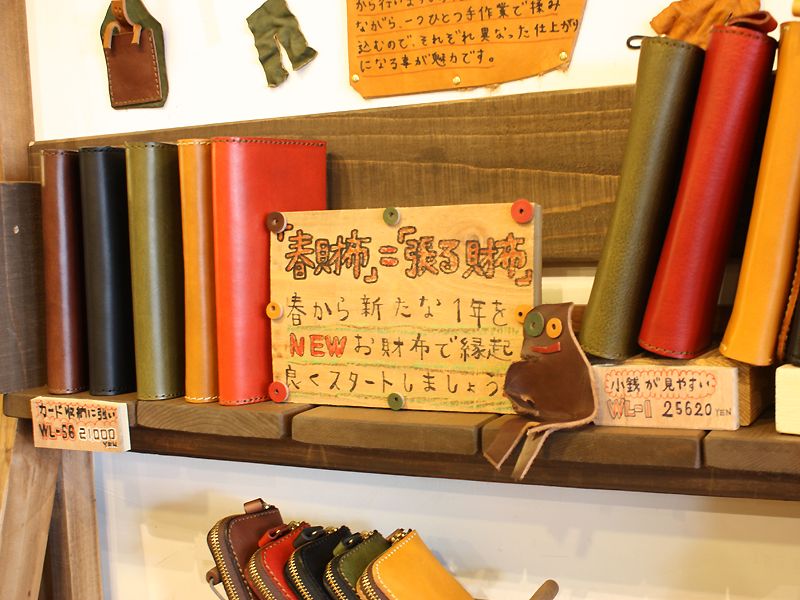 から行い
ながら、一つひとつ手作業で揉み
込むので、それぞれ異なった仕上がり
になる事が魅力です。
「春財布」=「張る財布」
春から新たな1年を
NEWお財布で縁起
良くスタートしましょう
カード収納に強い
WL-56 21000
YEN
小銭が見やすい
WL-1 25620 YEN